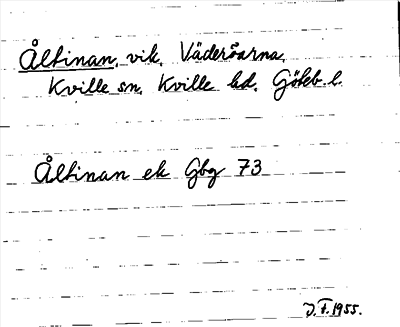 Åltinan, vik, Väderöarna,
Kville sn. Kville hd. Göteb. l.
Åltinan ek Gbg 73
J.F. 1955.